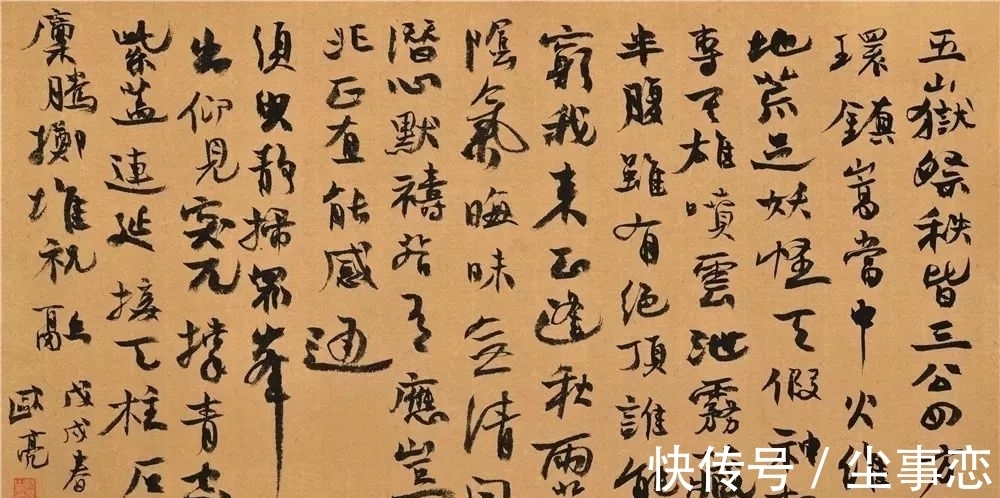 五嶽祭秩皆三公四方
環鎮嵩當中火維
地荒足妖怪天假神
專其雄噴雲泄霧
半腹雖有絕頂誰能
窮我來正逢秋雨
陰氣晦昧無清風
潛心默禱若有應豈
非正直能感通
須臾靜掃眾峰
出仰見突兀撐青空
紫蓋連延接天柱石
廩騰擲堆祝融
戊戌春
歐亮
快传号 / 尘事恋